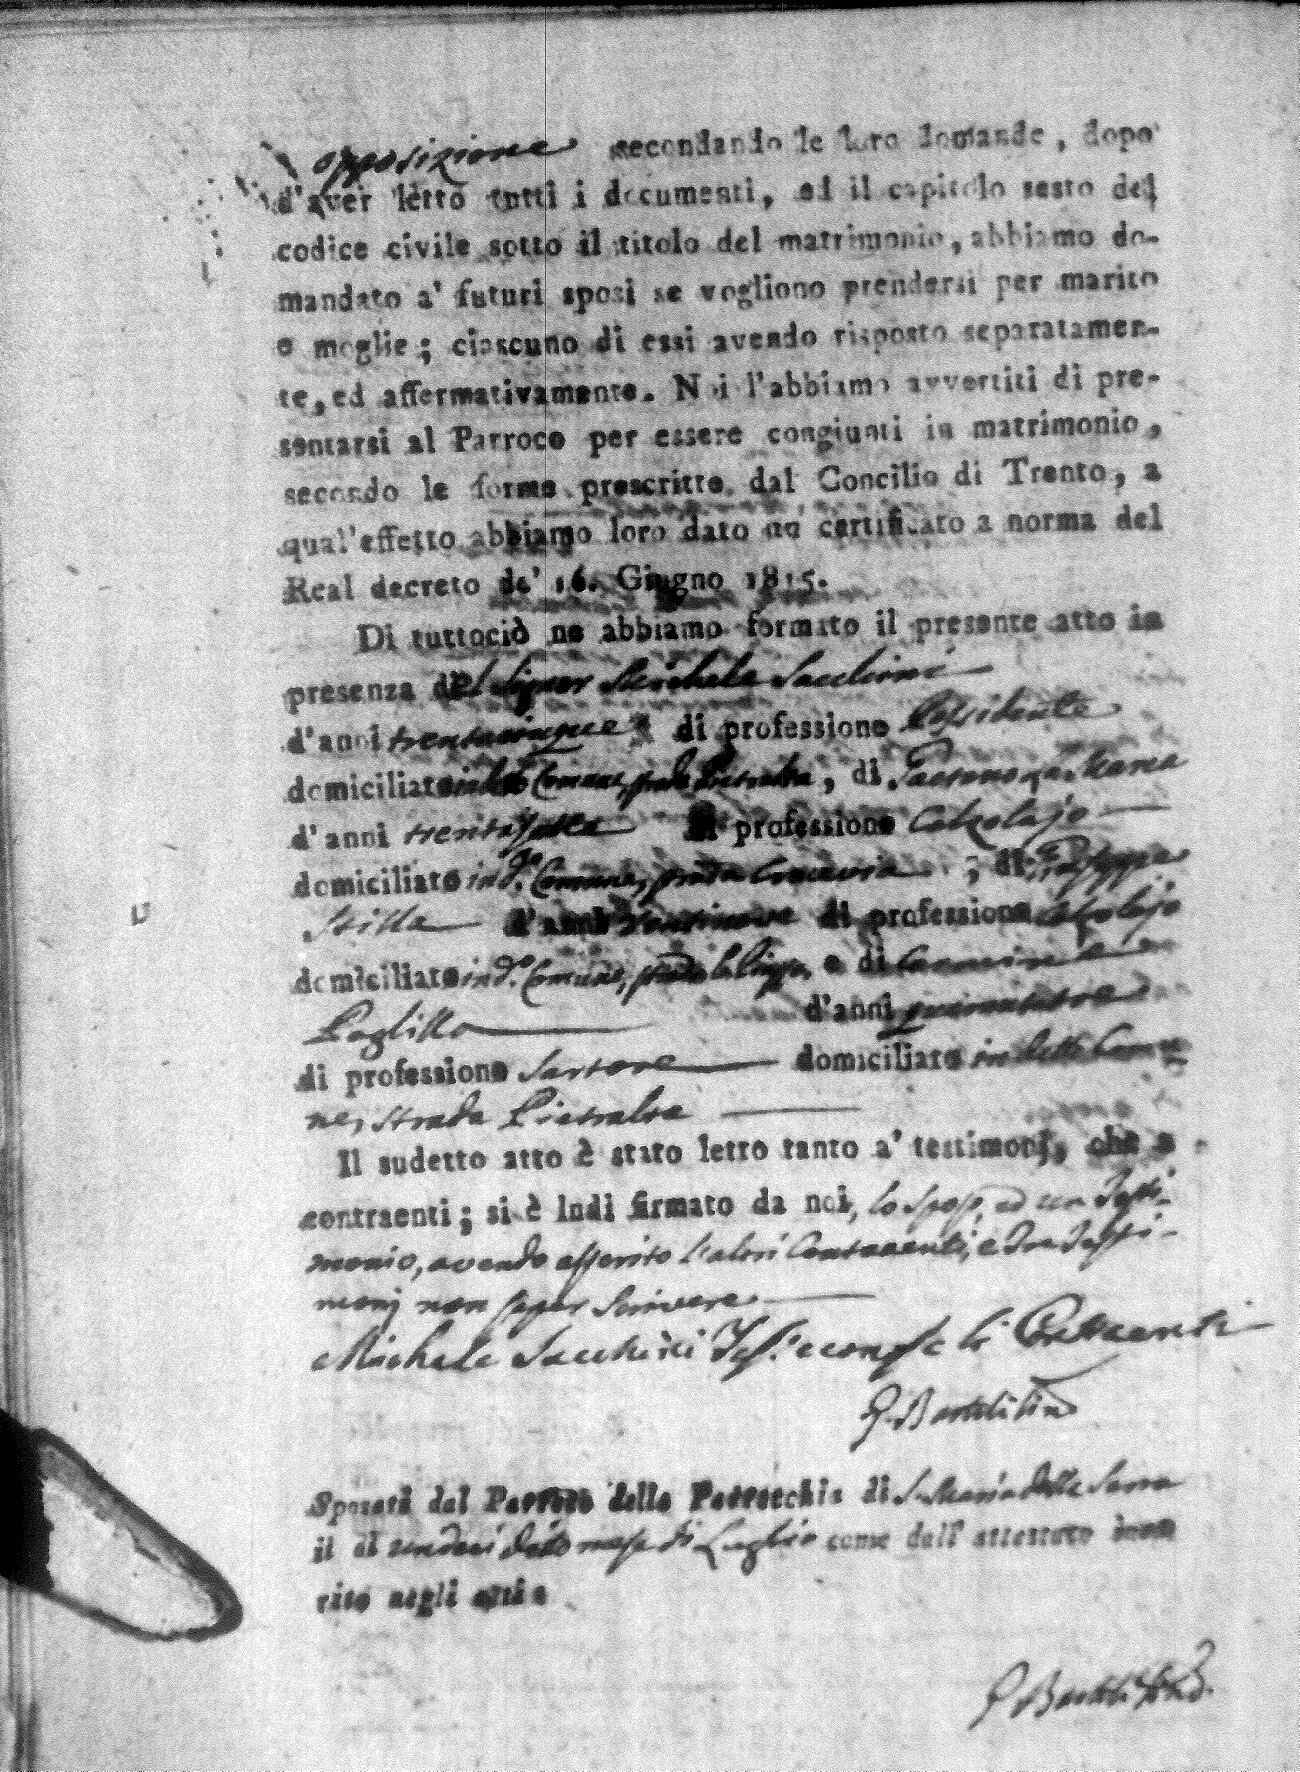 opposizione secondando le loro domande, dopo
d'aver letto tutti i documenti, ed il capitolo sesto del
codice civile sotto il titolo del matrimonio, abbiamo do-
mandato a' futuri sposi se vogliono prendersi per marito
e moglie; ciascuno di essi avendo risposto separatamen-
te, ed affermativamente. Noi l'abbiamo avvertiti di pre-
sentarsi al Parroco per essere congiunti in matrimonio,
secondo le forme prescritte dal Concilio di Trento, a
qual'effetto abbiamo loro dato un certificato a norma del
Real decreto de' 16. Giugno 1815.
Di tuttociò ne abbiamo formato il presente atto in
presenza del Signor Michele Sacchini
d'anni trentacinque di professione Possidente
domiciliato in Comune, strada Pietralta, di Gaetano
d'anni di professione Calzolajo
domiciliato in d.o Comune, strada ; di Giuseppe
Stilla d'anni ventinove di professione calzolajo
domiciliato in d.o Comune, strada la Piazza, e di Carmine
d'anni quarantatre
di professione Sartore domiciliato in detto Comu-
ne, strada Pietralta
Il sudetto atto è stato letto tanto a' testimonj, che a
contraenti; si è indi firmato da noi, lo sposo, ed un Testi-
monio, avendo asserito l'altri Contraenti, e tre Testi-
monj non saper Scrivere
Michele Sacchini Tes.e
Sposati dal Parroco della Parrocchia di S. Maria della Serra
il dì undeci d.to mese di Luglio come dall' attestato inse
rito negli atti